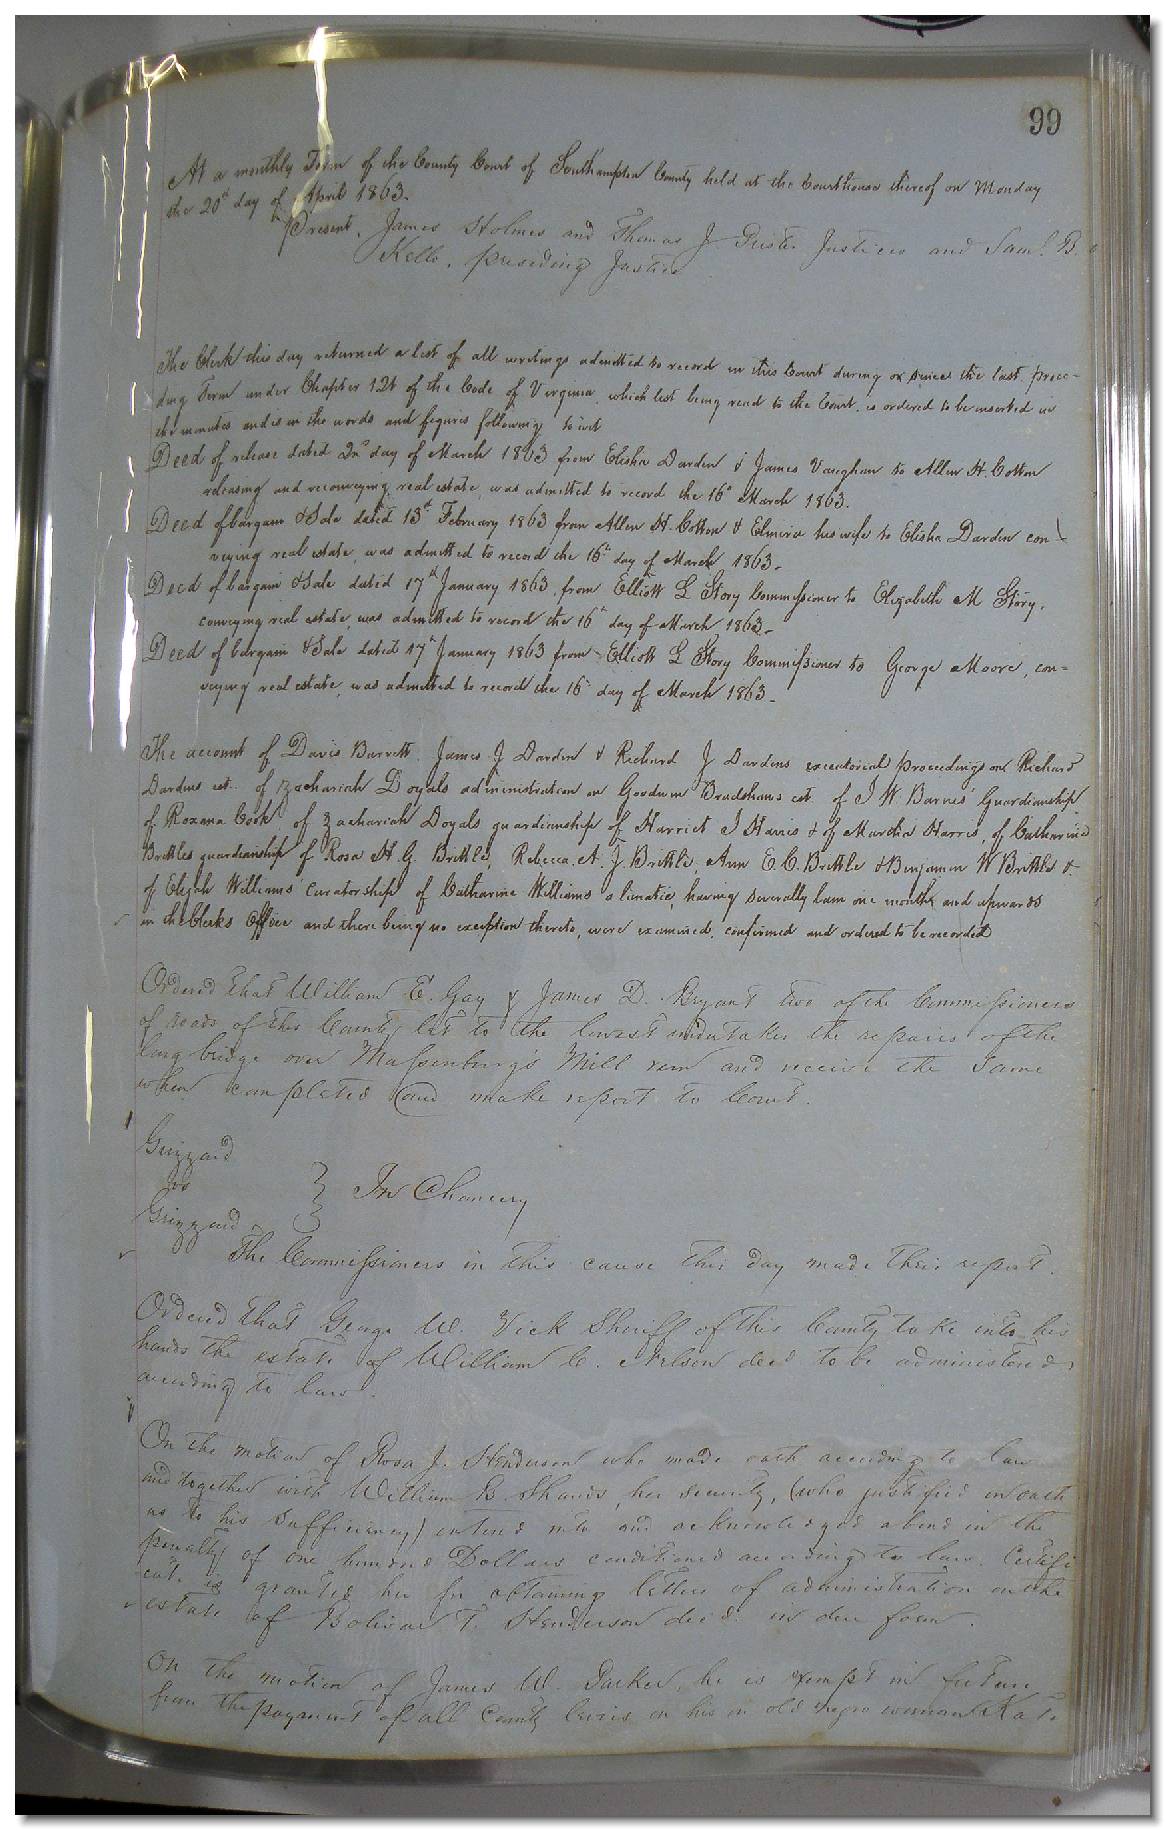 99
At a monthly Term of the County Court of Southampton County held at the Courthouse thereof on Monday
the 20th day of April 1863.
Present, James Holmes and Thomas J Justices and Saml. B.
Kello, presiding Justice
The Clerk this day returned a list of all writings admitted to record in this Court during or since the last prece-
ding Term under Chapter 121 of the Code of Virginia, which list being read to the Court, is ordered to be inserted in
the minutes and is in the words and figures following to wit
Deed of release dated 2nd day of March 1863 from Elisha Darden & James Vaughan to Allen H. Cotton
releasing and reconveying real estate, was admitted to record the 16th March 1863.
Deed of bargain & Sale dated 13th February 1863 from Allen H. Cotton & Elmira his wife to Elisha Darden con
veying real estate, was admitted to record the 16th day of March 1863.
Deed of bargain & Sale dated 17th January 1863 from Elliott L Story Commissioner to Elizabeth M Story,
conveying real estate, was admitted to record the 16th day of March 1863.
Deed of bargain & Sale dated 17th January 1863 from Elliott L Story Commissioner to George Moore, con=
veying real estate, was admitted to record the 16th day of March 1863.
The account of Davis Barrett James J Darden & Richard J Dardens executorial proceedings on Richard
Dardens est. of Zachariah Doyals administration on Goodwin Bradshaws est. of J W. Barnes' Guardianship
of Roxana Cook of Zachariah Doyals guardianship of Harriet J Harris & of Martha Harris, of Catharine
Brittles guardianship of Rosa H. G. Brittle, Rebecca A. J. Brittle, Ann E. C. Brittle & Benjamin W Brittle &
of Elijah Williams' curatorship of Catharine Williams a lunatic, having severally lain one month and upwards
in the Clerks Office and there being no exception thereto, were examined, confirmed and ordered to be recorded
Ordered that William E. Gay & James D. Bryant two of the Commissioners
of roads of this County let to the lowest undertaker the repairs of the
long bridge over Massenburg's Mill run and receive the same
when completed and make report to Court.
Grizzard
vs
Grizzard
In Chancery
The Commissioners in this cause this day made their report.
Ordered that George W. Vick Sheriff of this County take into his
hands the estate of William C. Nelson decd to be administered
according to law.
On the motion of Rosa J. Henderson who made oath according to law
and together with William B. Shands, her security, (who justified on oath
as to his sufficiency) entered into and acknowledged a bond in the
penalty of one hundred Dollars conditioned according to law. Certifi
cate is granted her for obtaining letters of administration on the
estate of Bolivar T. Henderson decd. in due form.
On the motion of James W. Parker, he is exempt in future
from the payment of all County levies on his on old negro woman Kate